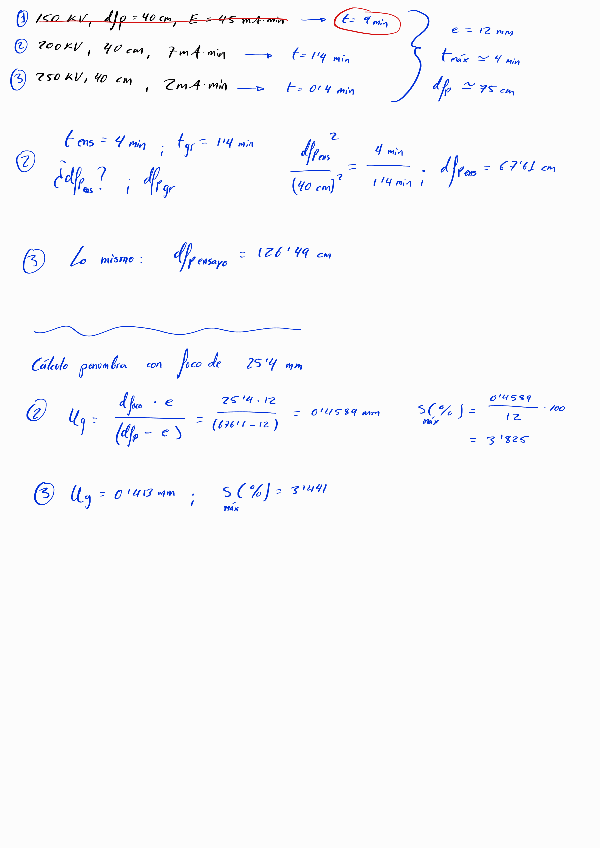 ① 150 KV, dfp = 40 cm, E = 45 mA·min → t = 9 min
② 200 KV, 40 cm, 7 mA·min → t = 1'4 min
③ 250 KV, 40 cm, 2 mA·min → t = 0'4 min
e = 12 mm
t máx ≃ 4 min
dfp ≃ 75 cm
② t ens = 4 min ; t gr = 1'4 min
¿dfp ens? ; dfp gr
dfp ens² / (40 cm)² = 4 min / 1'4 min ; dfp ens = 67'61 cm
③ Lo mismo: dfp ensayo = 126'49 cm
Cálculo penumbra con foco de 25'4 mm
② Ug = dfoco · e / (dfp - e) = 25'4 · 12 / (676'1 - 12) = 0'4589 mm
S(%) máx = 0'4589 / 12 · 100
= 3'825
③ Ug = 0'413 mm ; S(%) máx = 3'441